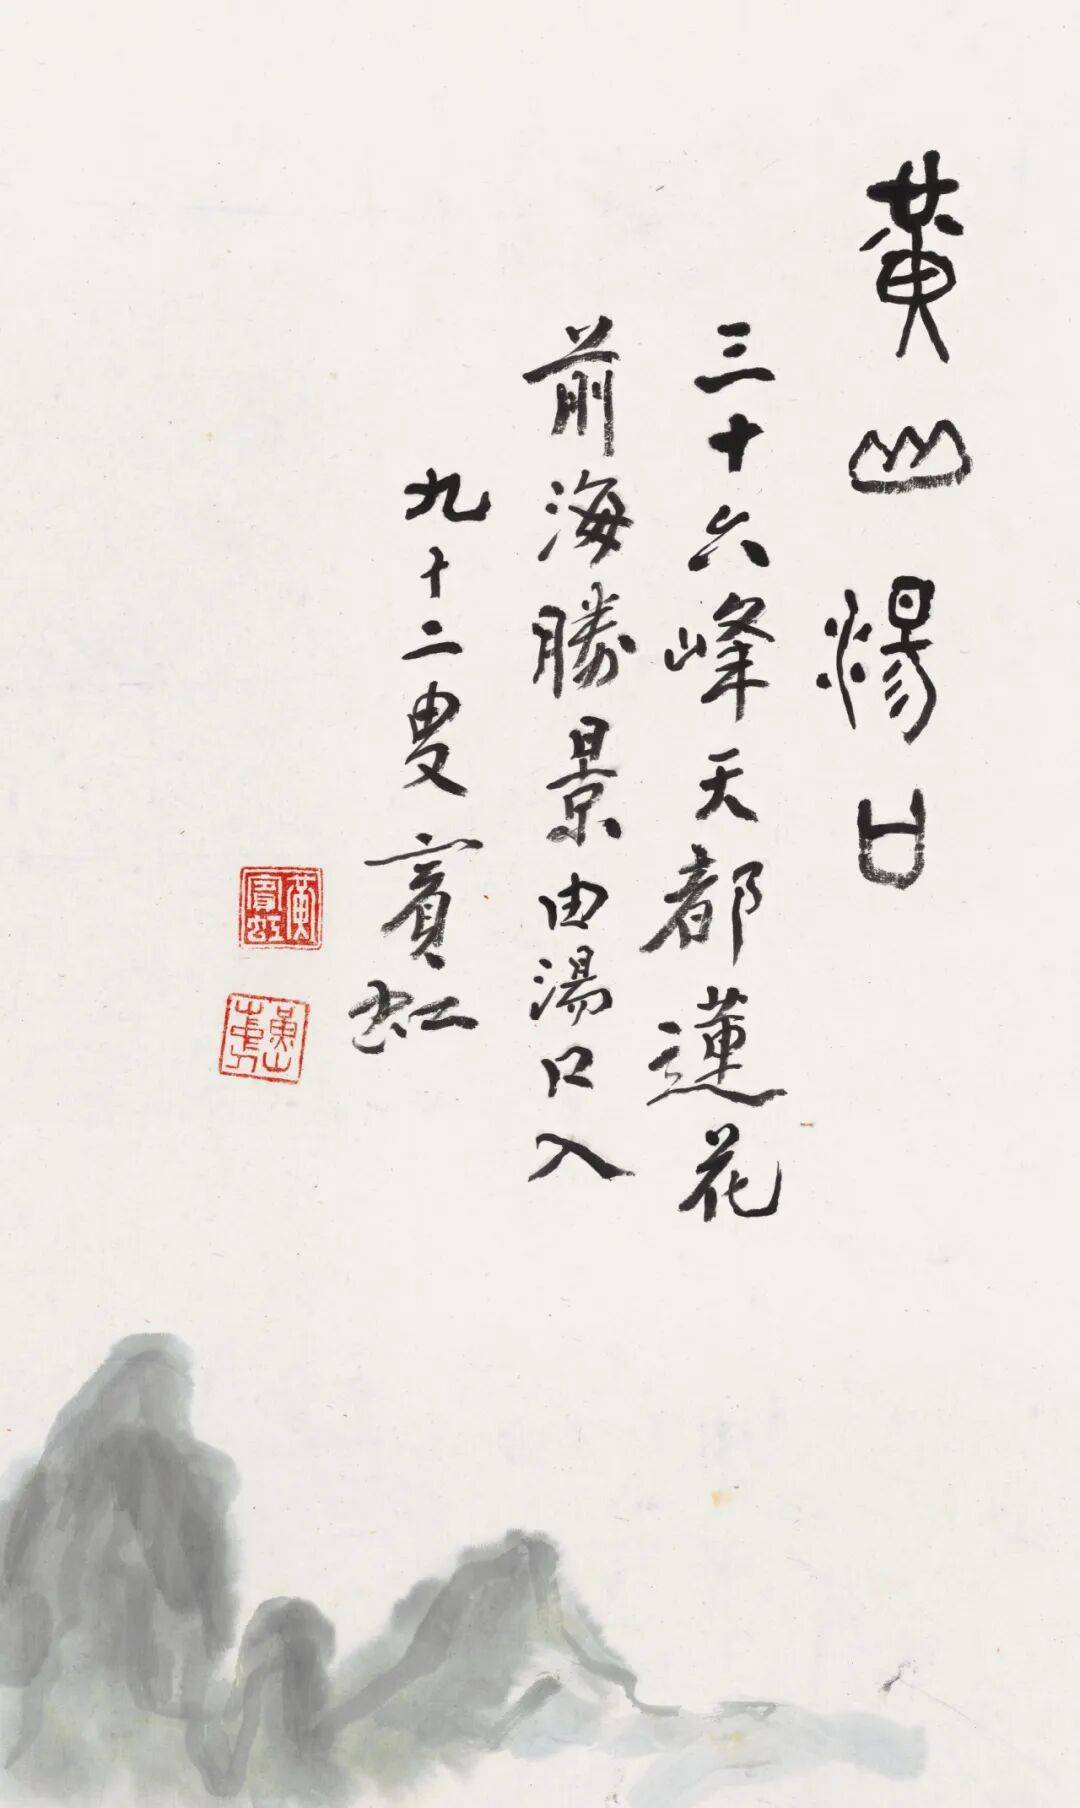 黄山湯口
三十六峰天都蓮花
前海勝景由湯口入
九十二叟賓虹
黄賓虹
黄山